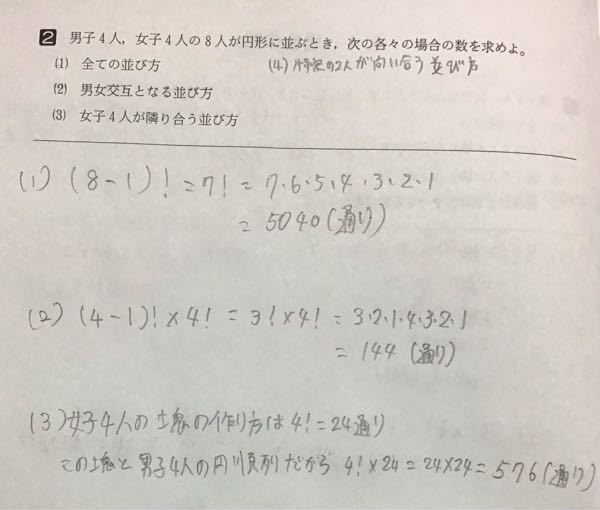 2 男子4人，女子4人の8人が円形に並ぶとき，次の各々の場合の数を求めよ。
(1) 全ての並び方
(4) 特定の2人が向い合う並び方
(2) 男女交互となる並び方
(3) 女子4人が隣り合う並び方
(1) (8-1)! = 7! = 7・6・5・4・3・2・1
= 5040(通り)
(2) (4-1)!×4! = 3!×4! = 3・2・1・4・3・2・1
= 144 (通り)
(3)女子4人の塊の作り方は4!=24通り
この塊と男子4人の円順列だから 4!×24=24×24=576(通り)